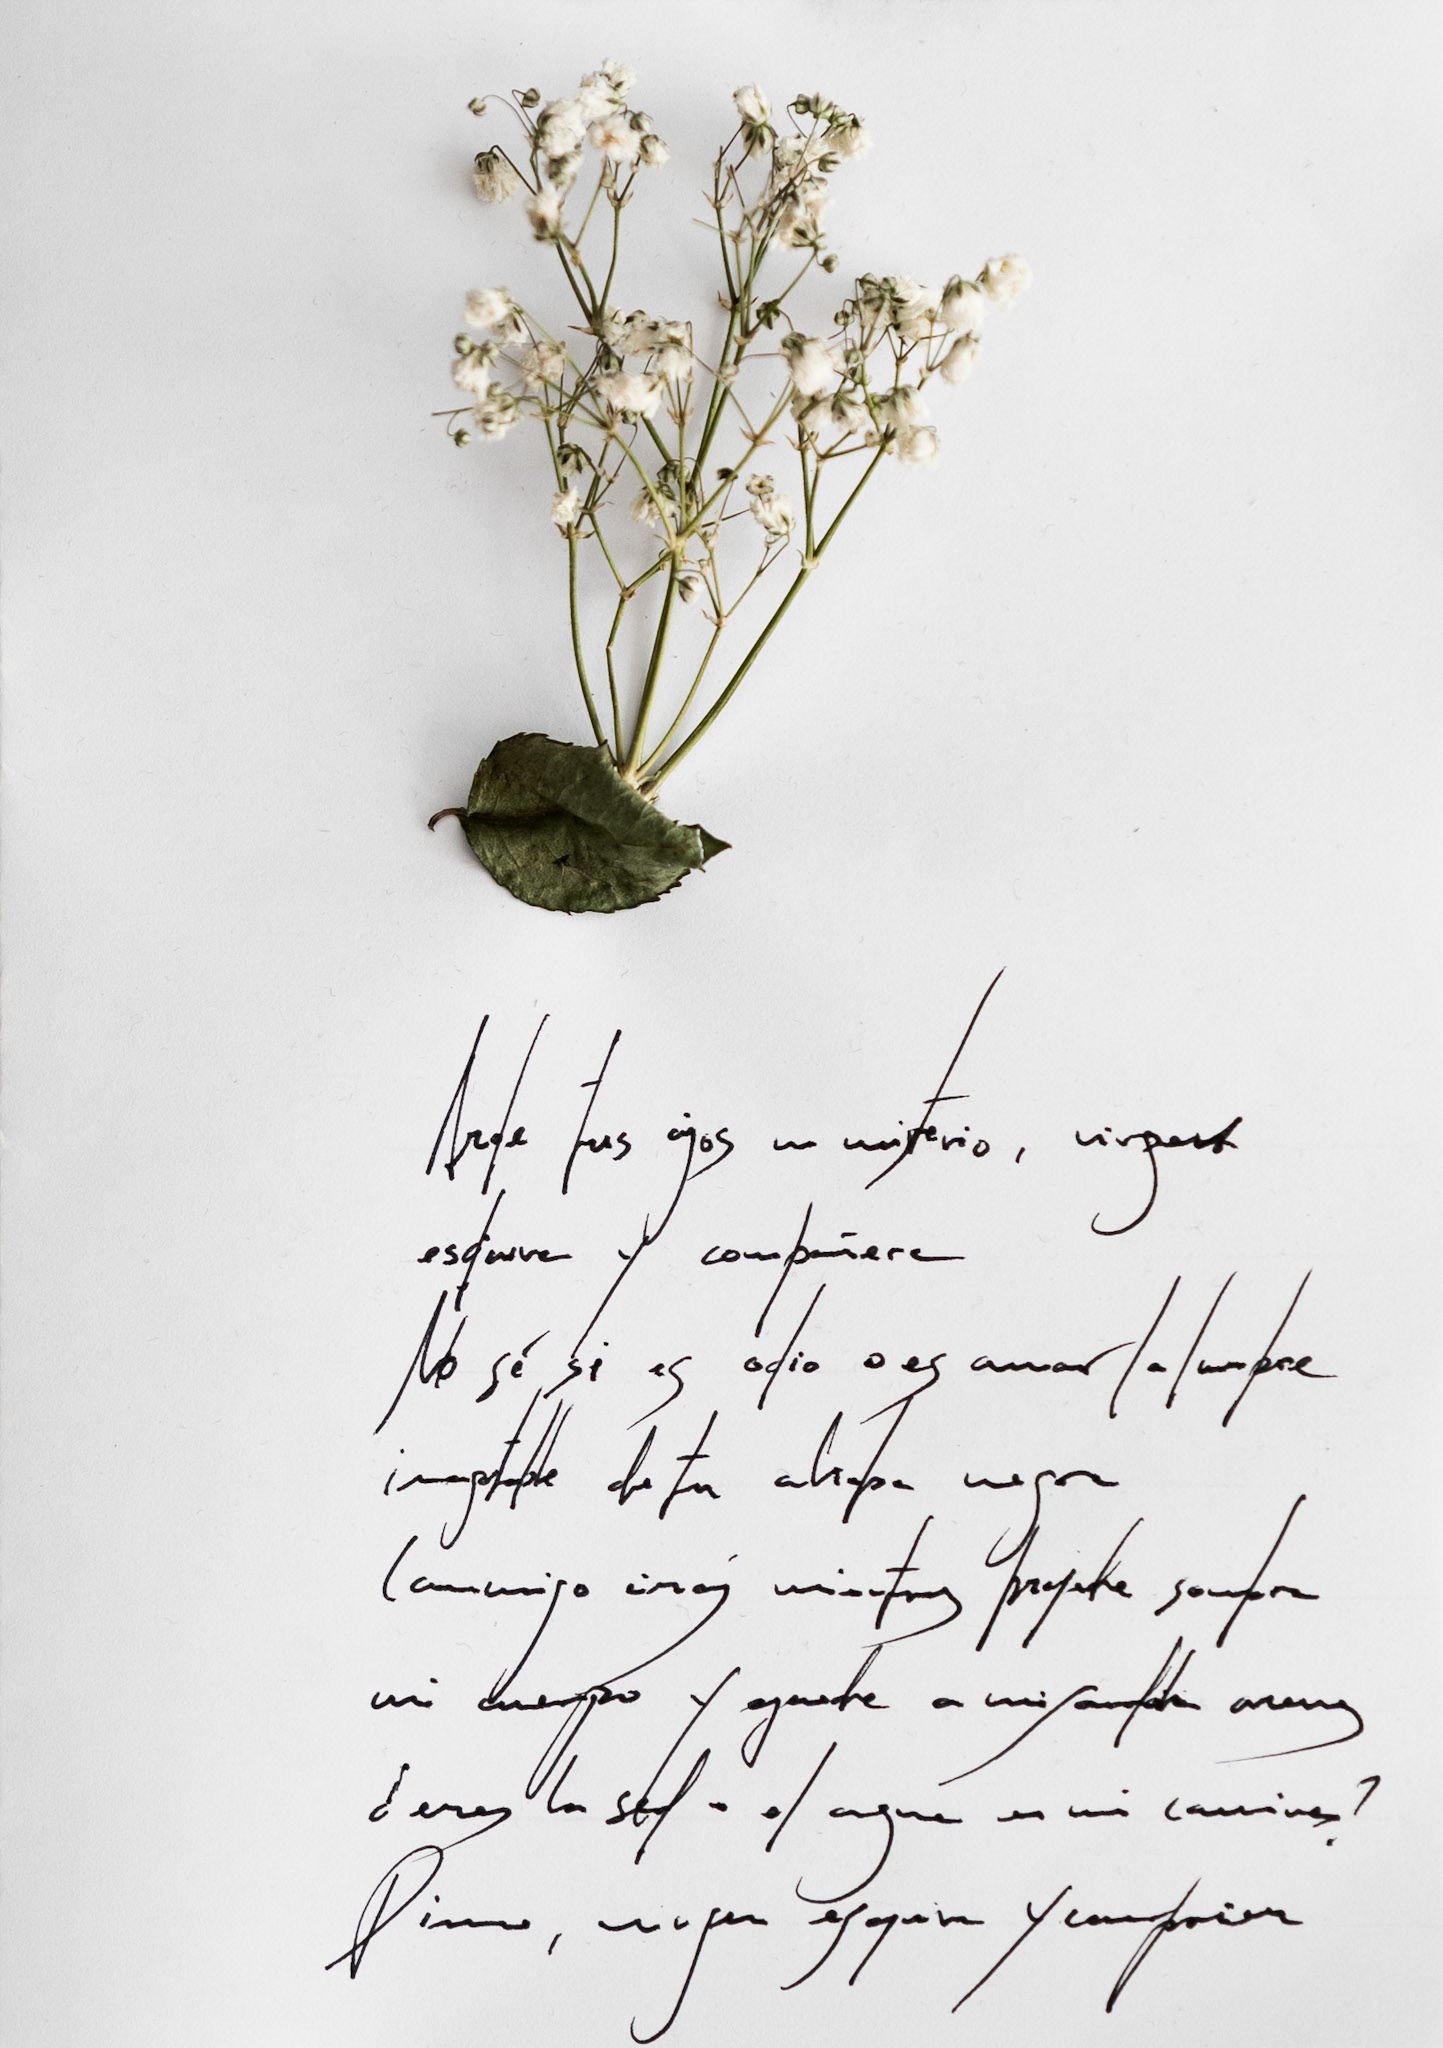 Arde tus ojos un misterio, virgen
esquiva y compañera
No sé si es odio o es amor la lumbre
inagotable de tu aljaba negra
Conmigo irás mientras proyecte sombra
mi cuerpo y quede a mi sandalia arena
¿eres la sed o el agua en mi camino?
Dime, virgen esquiva y compañera